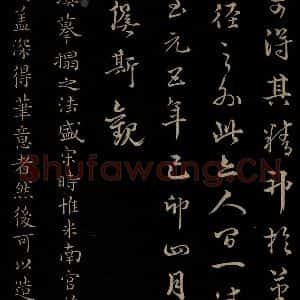 得其精神於
徑之外此無人間
至元五年己卯四月
傒斯觀
摹搨之法盛宋時惟米南宮
蓋深得筆意者然後可以造
Shufawang.CN